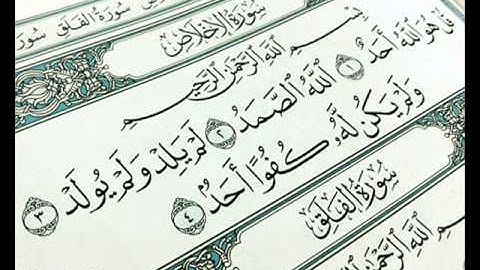 سُورَةُ الفَلَقِ
سُورَةُ الإِخْلَاصِ
بِسْمِ اللَّهِ الرَّحْمَٰنِ الرَّحِيمِ
قُلْ هُوَ اللَّهُ أَحَدٌ ١ اللَّهُ الصَّمَدُ ٢ لَمْ يَلِدْ وَلَمْ يُولَدْ ٣
وَلَمْ يَكُن لَّهُ كُفُوًا أَحَدٌ ٤
سُورَةُ الفَلَقِ
اللَّهِ الرَّحْمَٰنِ